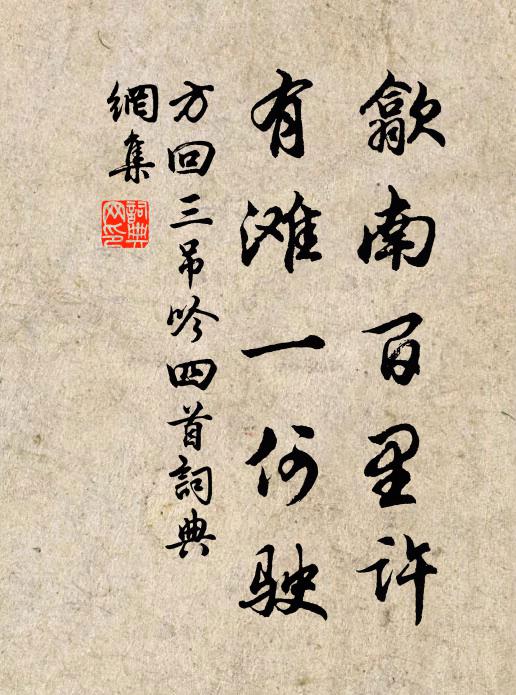 歙南百里许
有滩一何驶
方回三吊吟四首詞典
網集
詞典
网印